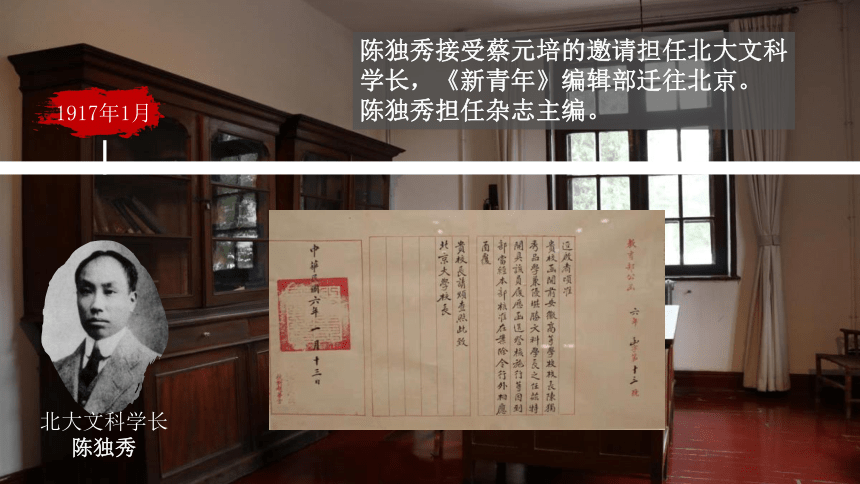 陈独秀接受蔡元培的邀请担任北大文科
学长，《新青年》编辑部迁往北京。
陈独秀担任杂志主编。
1917年1月
教育部公函
六年
第十三號
逕啟者頃准
貴校函開前安徽高等學校校長陳獨
秀品學兼優堪勝文科學長之任茲特
開具該員履歷函送
部當經本部核准在案除令行外相應
函覆
貴校長請煩查照此致
北京大學校長
中華民國六年一月十三日
北大文科学长
陈独秀